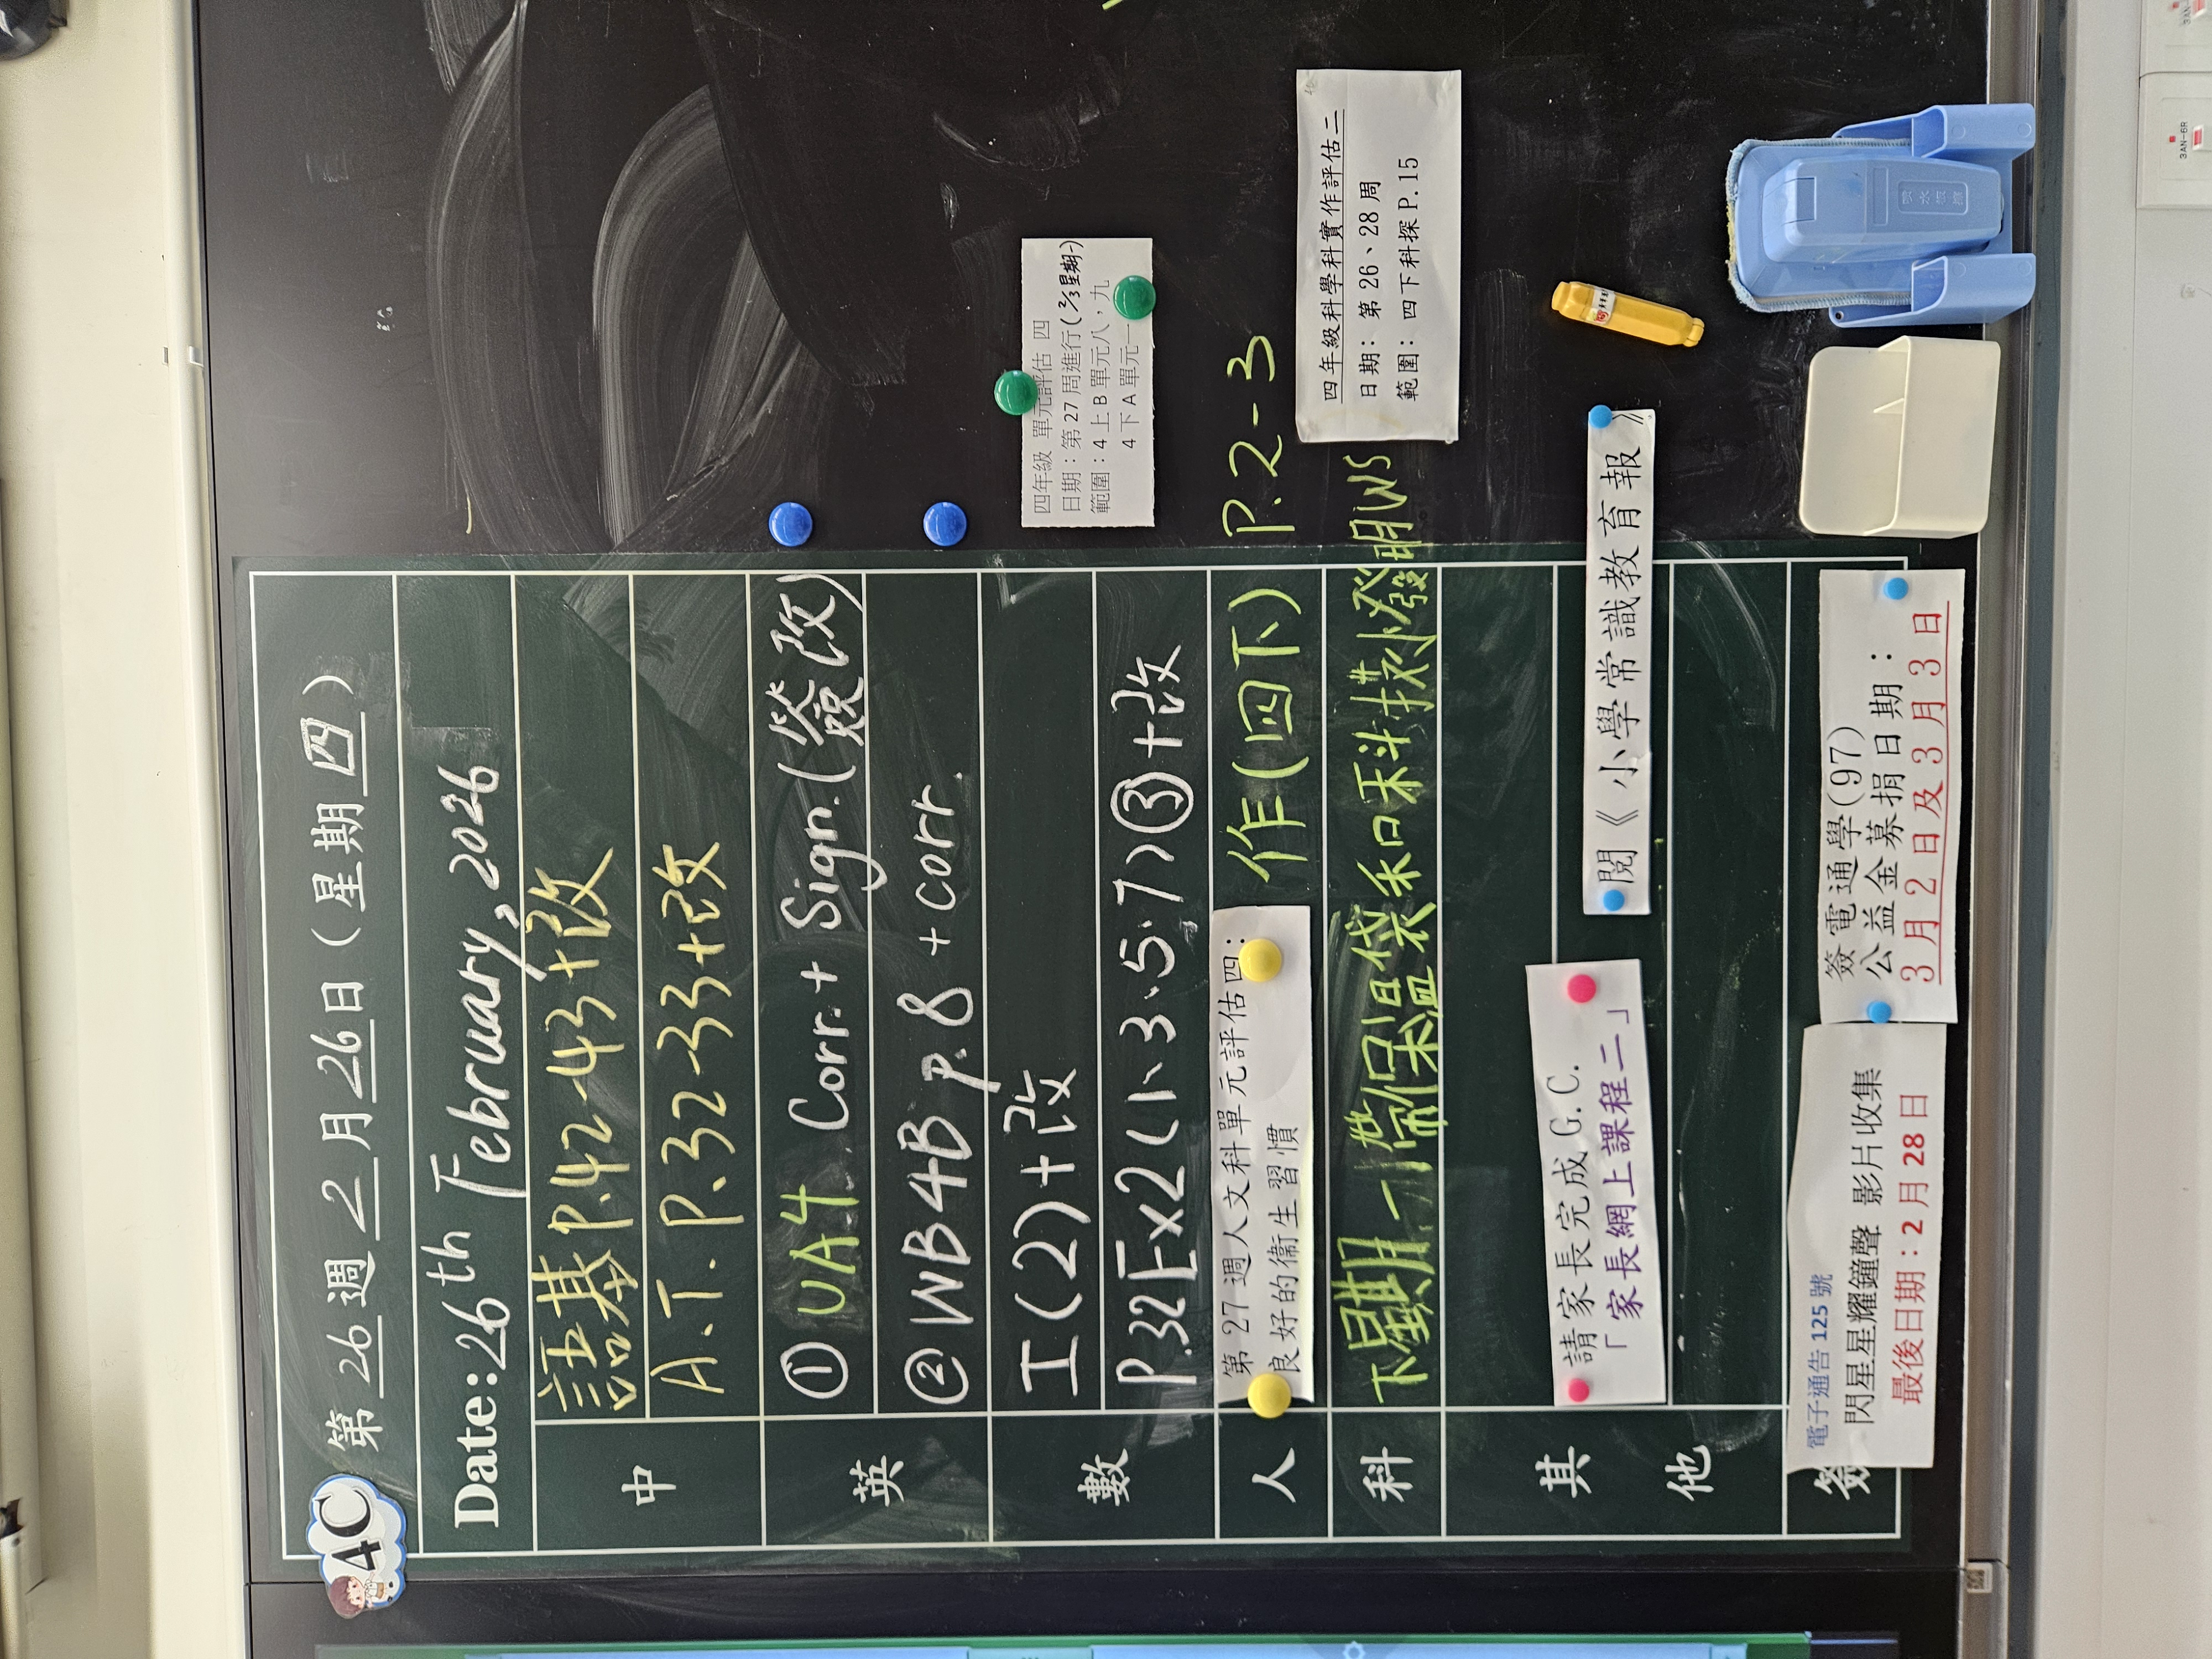 4C
第 26 週 2 月 26 日 ( 星 期 四 )
Date: 26th February, 2026
中
語基 P.42-43+改
A.T. P.32-33+改
英
① UA4 Corr. + Sign. (簽改)
② WB4B p.8 + corr.
數
工(2)+改
P.32Ex2(1、3、5、7)③+改
四年級 單元評估 四
日期：第27周進行(2/3星期一)
範圍：4上B單元八，九
4下A單元一
人
第27週人文科單元評估四：
良好的衞生習慣
作(四下) P.2-3
科
下星期一帶保溫袋和科技小發明WS
四年級科學科實作評估二
日期：第26、28周
範圍：四下科探P.15
其他
請家長完成G.C.
「家長網上課程二」
閱《小學常識教育報》
簽
電子通告 125 號
閃星星耀鐘聲 影片收集
最後日期：2 月 28 日
簽電通學(97)
公益金募捐日期：
3月2日及3月3日
3AN-6R